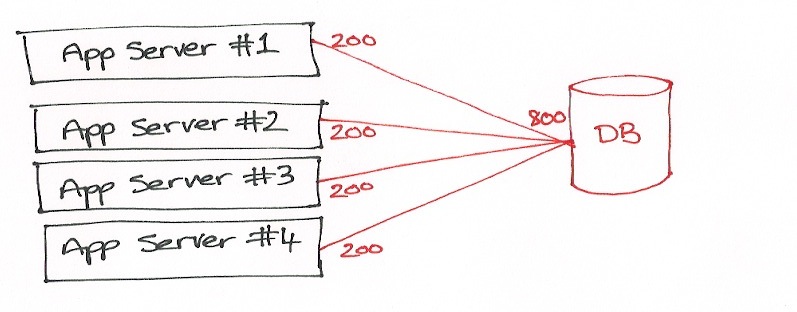 App Server #1
200
App Server #2
200
800
DB
App Server #3
200
App Server #4
200